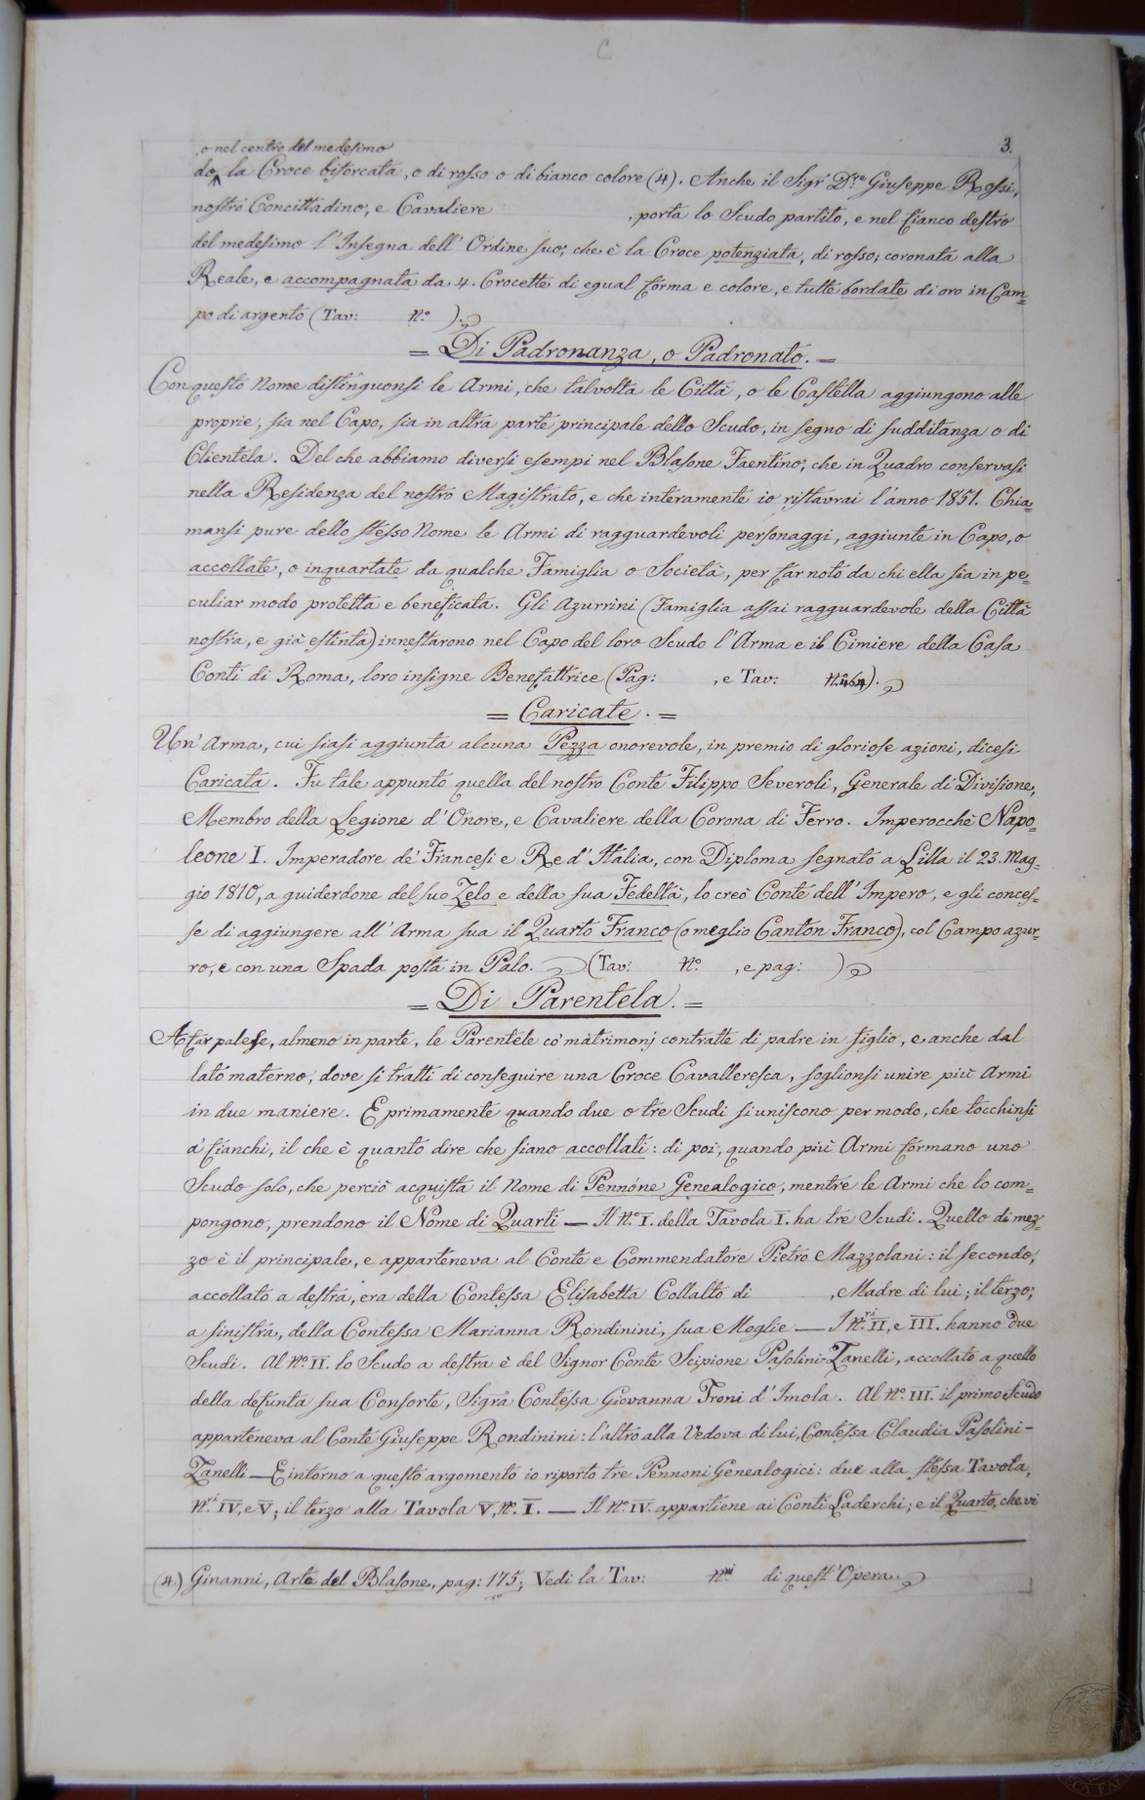 3.
, o nel centro del medesimo
do, la Croce biforcata, o di rosso o di bianco colore (4). Anche il Sigr. D.re Giuseppe Rossi,
nostro Concittadino, e Cavaliere , porta lo Scudo partito, e nel fianco destro
del medesimo l'Insegna dell'Ordine suo; che è la Croce potenziata, di rosso; coronata alla
Reale, e accompagnata da 4. Crocette di egual forma e colore, e tutte bordate di oro in Cam=
po di argento (Tav: N.o ).
= Di Padronanza, o Padronato. =
Con questo Nome distinguonsi le Armi, che talvolta le Città, o le Castella aggiungono alle
proprie, sia nel Capo, sia in altra parte principale dello Scudo, in segno di sudditanza o di
Clientela. Del che abbiamo diversi esempi nel Blasone Faentino, che in Quadro conservasi
nella Residenza del nostro Magistrato, e che interamente io ristavrai l'anno 1851. Chia=
mansi pure dello stesso Nome le Armi di ragguardevoli personaggi, aggiunte in Capo, o
accollate, o inquartate da qualche Famiglia o Società, per far noto da chi ella sia in pe=
culiar modo protetta e beneficata. Gli Azurrini (Famiglia assai ragguardevole della Città
nostra, e già estinta) innestarono nel Capo del loro Scudo l'Arma e il Cimiere della Casa
Conti di Roma, loro insigne Benefattrice (Pag: , e Tav: N.o 464).
= Caricate. =
Un'Arma, cui siasi aggiunta alcuna Pezza onorevole, in premio di gloriose azioni, dicesi
Caricata. Fu tale appunto quella del nostro Conte Filippo Severoli, Generale di Divisione,
Membro della Legione d'Onore, e Cavaliere della Corona di Ferro. Imperocchè Napo=
leone I. Imperadore de' Francesi e Re d'Italia, con Diploma segnato a Lilla il 23. Mag=
gio 1810, a guiderdone del suo Zelo e della sua Fedeltà, lo creò Conte dell'Impero, e gli conces=
se di aggiungere all'Arma sua il Quarto Franco (o meglio Canton Franco), col Campo azur=
ro, e con una Spada posta in Palo. (Tav: N.o , e pag: )
= Di Parentela. =
A far palese, almeno in parte, le Parentele co' matrimonj contratte di padre in figlio, e anche dal
lato materno, dove si tratti di conseguire una Croce Cavalleresca, soglionsi unire più Armi
in due maniere. E primamente quando due o tre Scudi si uniscono per modo, che tocchinsi
a' fianchi, il che è quanto dire che siano accollati: di poi, quando più Armi formano uno
Scudo solo, che perciò acquista il Nome di Pennóne Genealogico, mentre le Armi che lo com=
pongono, prendono il Nome di Quarti — Il N.o I. della Tavola I. ha tre Scudi. Quello di mez=
zo è il principale, e apparteneva al Conte e Commendatore Pietro Mazzolani: il secondo,
accollato a destra, era della Contessa Elisabetta Collalto di , Madre di lui; il terzo,
a sinistra, della Contessa Marianna Rondinini, sua Moglie — I N.ri II, e III. hanno due
Scudi. Al N.o II. lo Scudo a destra è del Signor Conte Scipione Pasolini-Zanelli, accollato a quello
della defunta sua Consorte, Sigra. Contessa Giovanna Troni d'Imola. Al N.o III. il primo Scudo
apparteneva al Conte Giuseppe Rondinini: l'altro alla Vedova di lui, Contessa Claudia Pasolini-
Zanelli — E intorno a questo argomento io riporto tre Pennoni Genealogici: due alla stessa Tavola,
N.ri IV, e V; il terzo alla Tavola V, N.o I. — Il N.o IV. appartiene ai Conti Laderchi; e il Quarto, che vi
(4.) Ginanni, Arte del Blasone, pag: 175; Vedi la Tav: N.ri di quest'Opera.